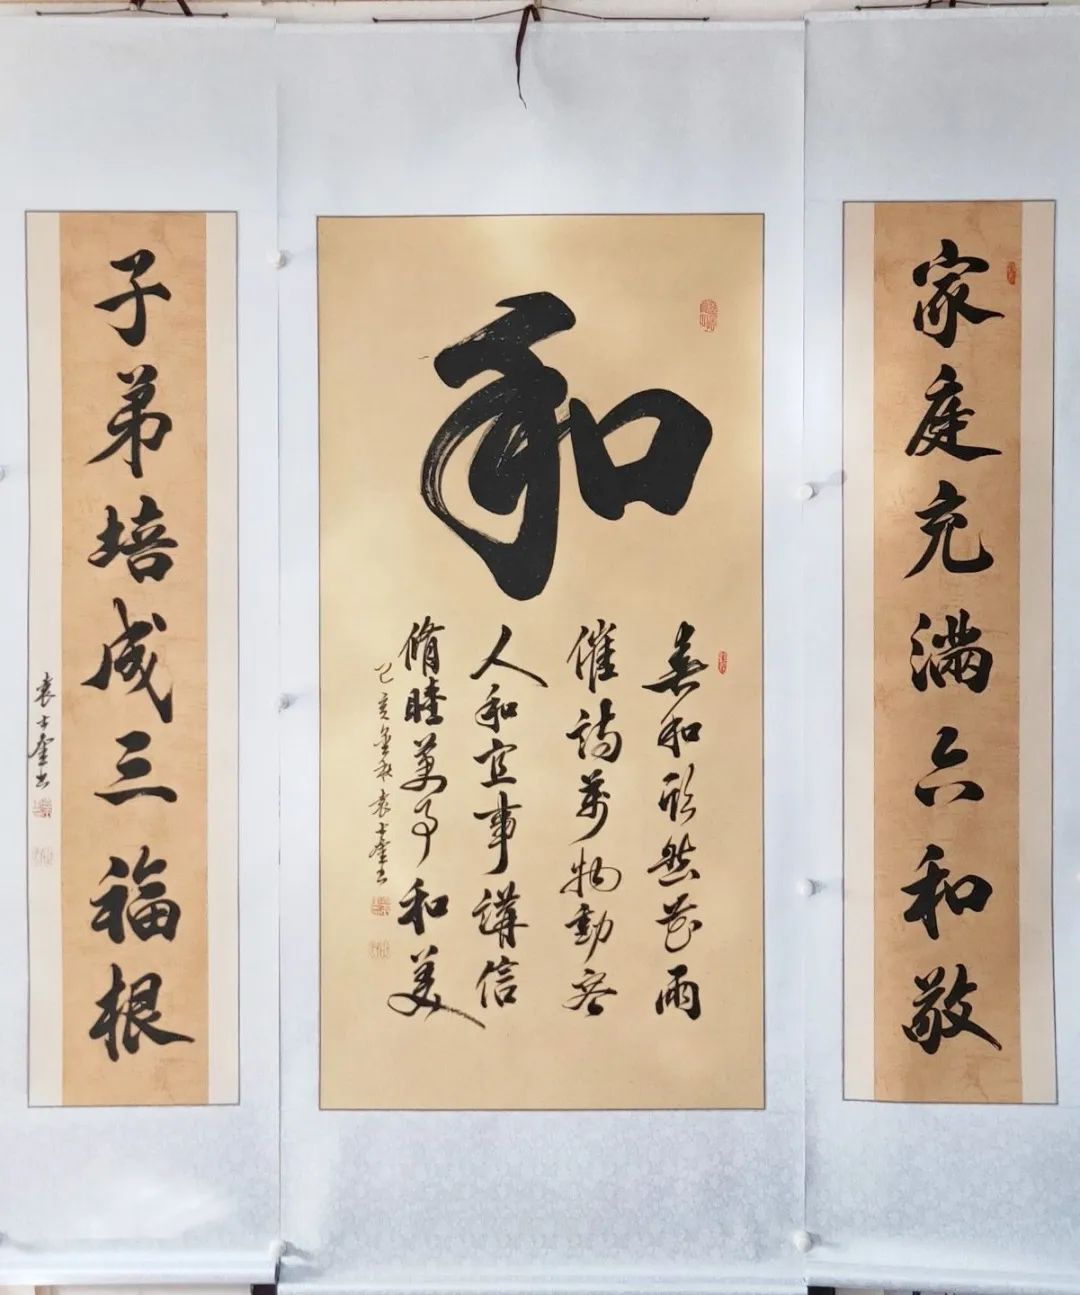 家庭充满六和敬
和
春和欣然花雨
催詩萬物動容
人和宜事講信
脩睦萬事和美
己亥金秋袁士奎书
子弟培成三福根
袁士奎书